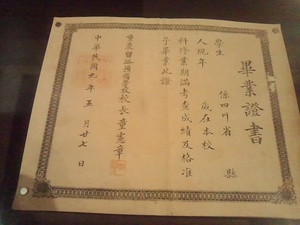 畢業證書
學生 係四川省 縣
人現年 歲在本校
科修業期滿考查成績及格准
予畢業此證
重慶留法預備學校校長童憲章
中華民國九年五月廿七日